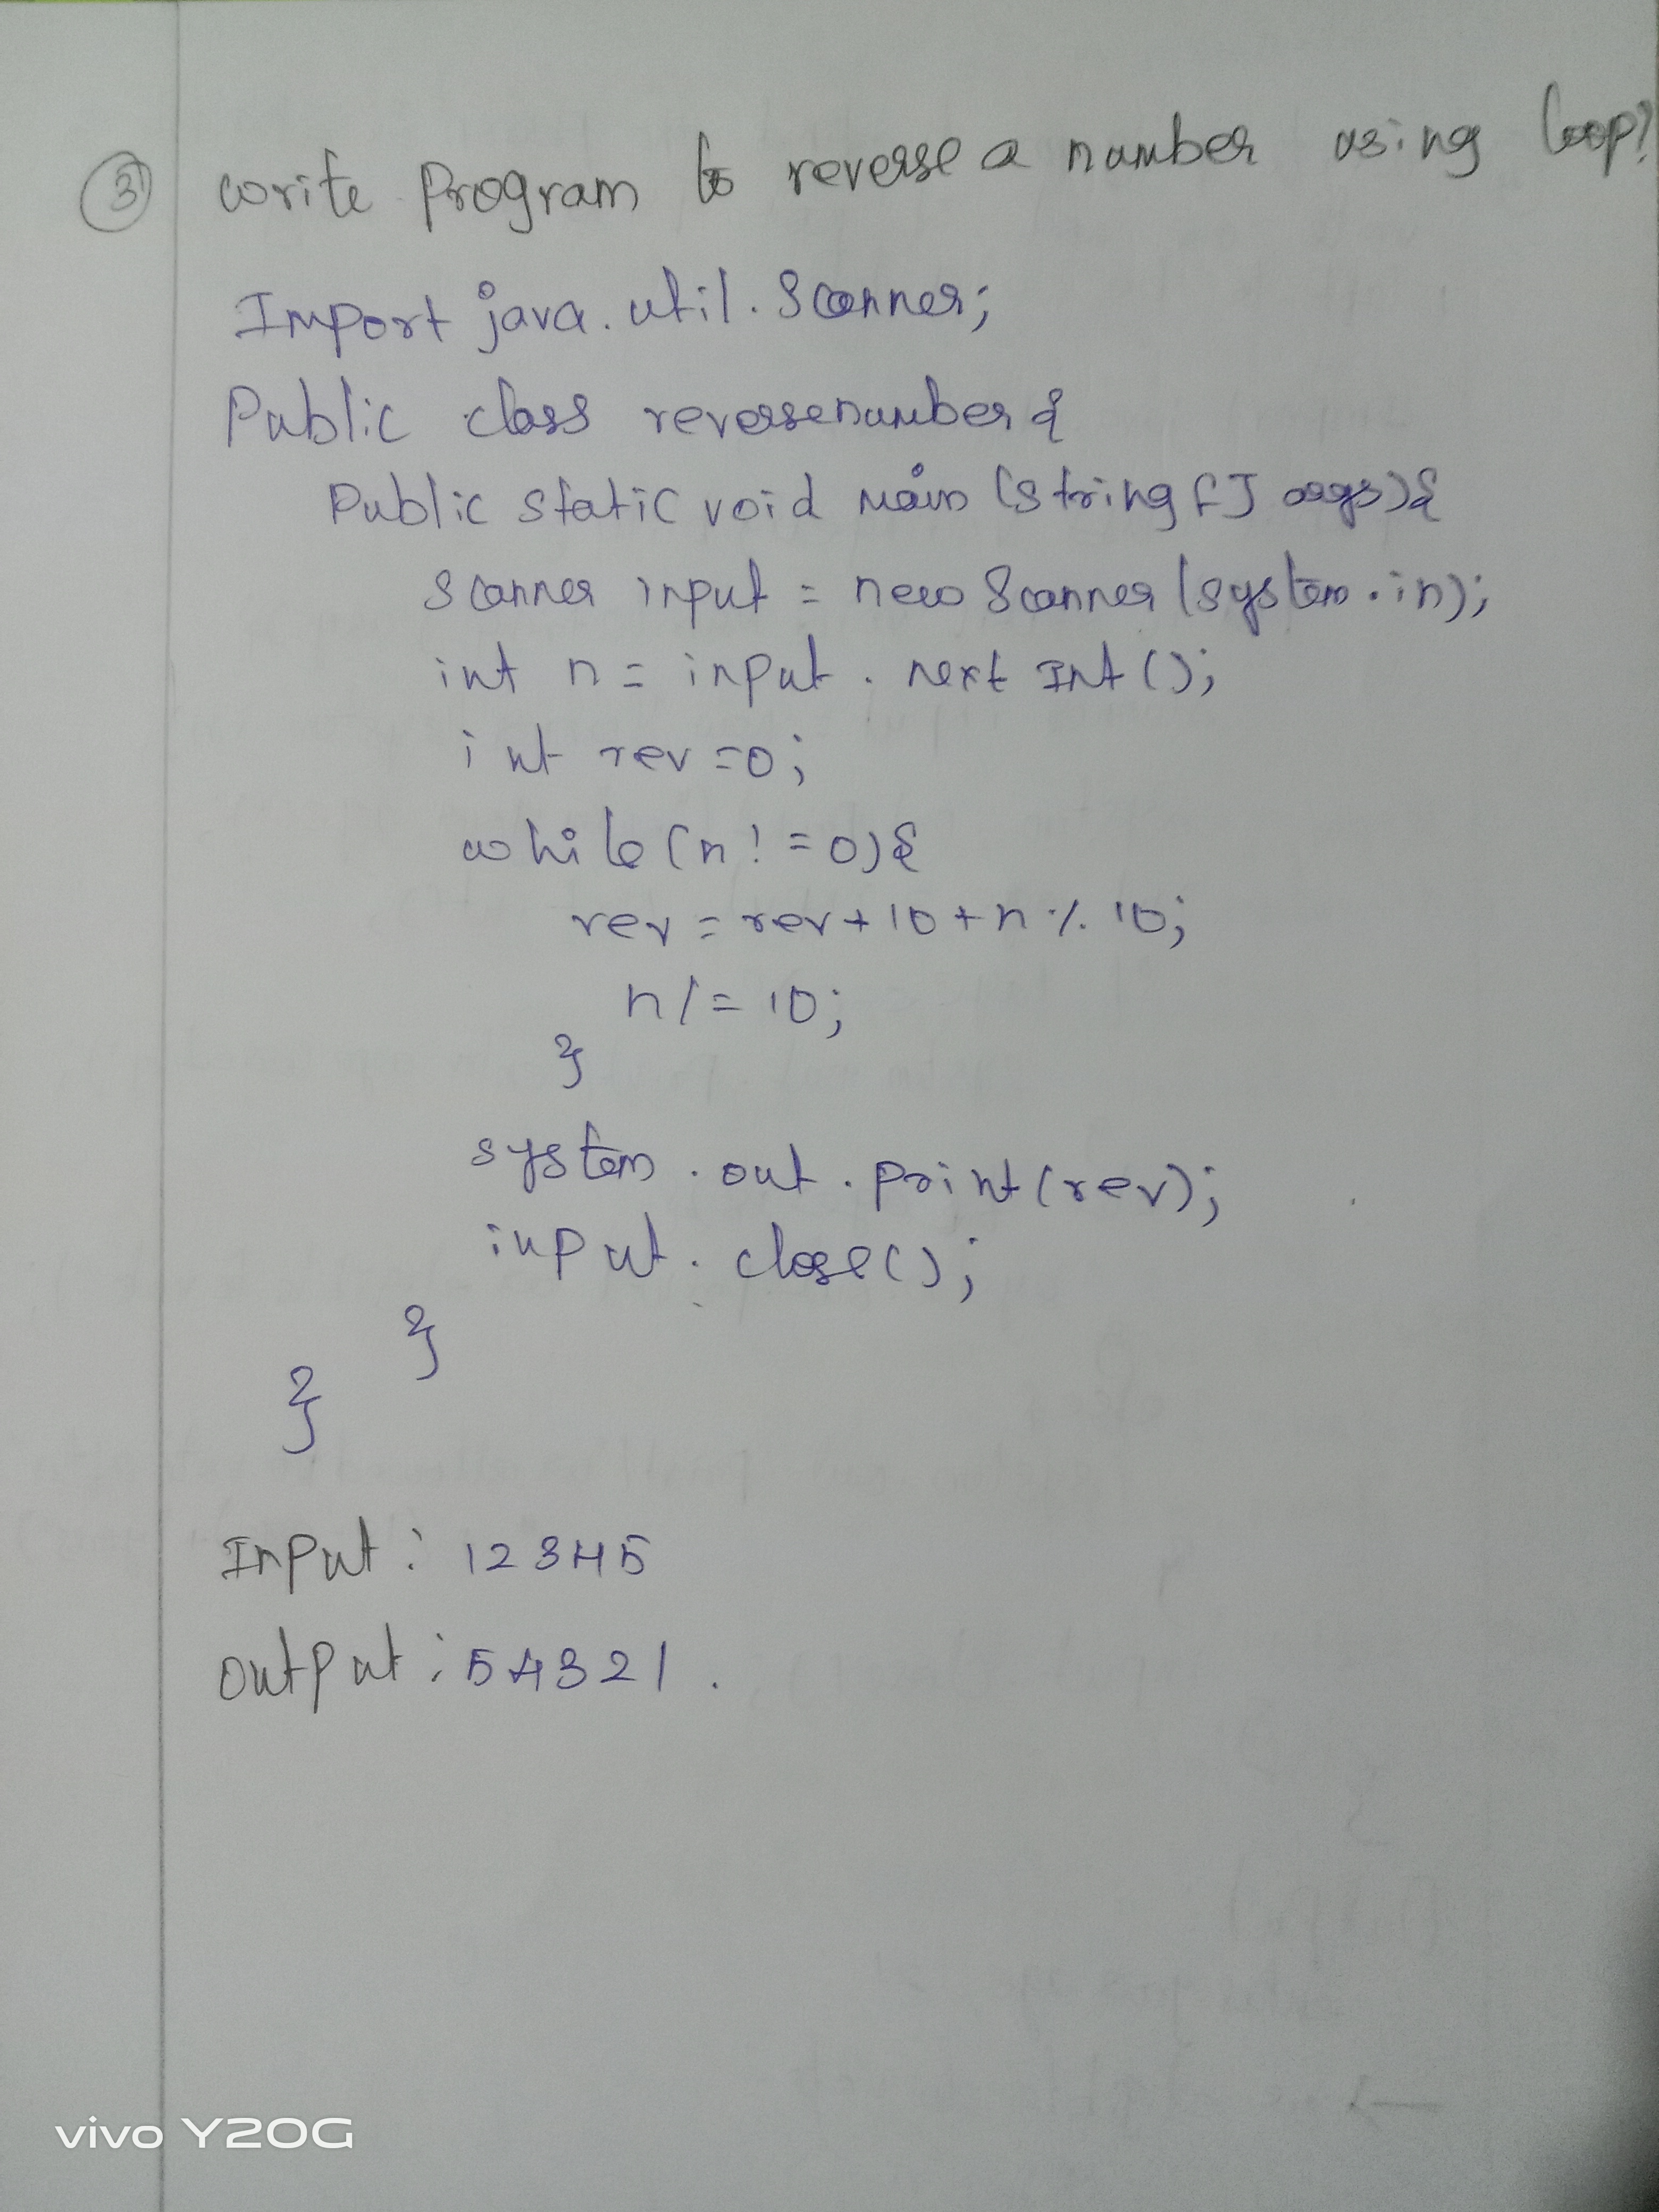 3 write program to reverse a number using loop?
Import java.util.Scanner;
Public class reversenumber {
Public static void main (string [] args) {
Scanner input = new Scanner (system.in);
int n = input.next Int ();
int rev = 0;
while (n != 0) {
rev = rev + 10 + n % 10;
n /= 10;
}
system.out.print(rev);
input.close();
}
}
Input: 12345
output: 54321.
vivo Y20G